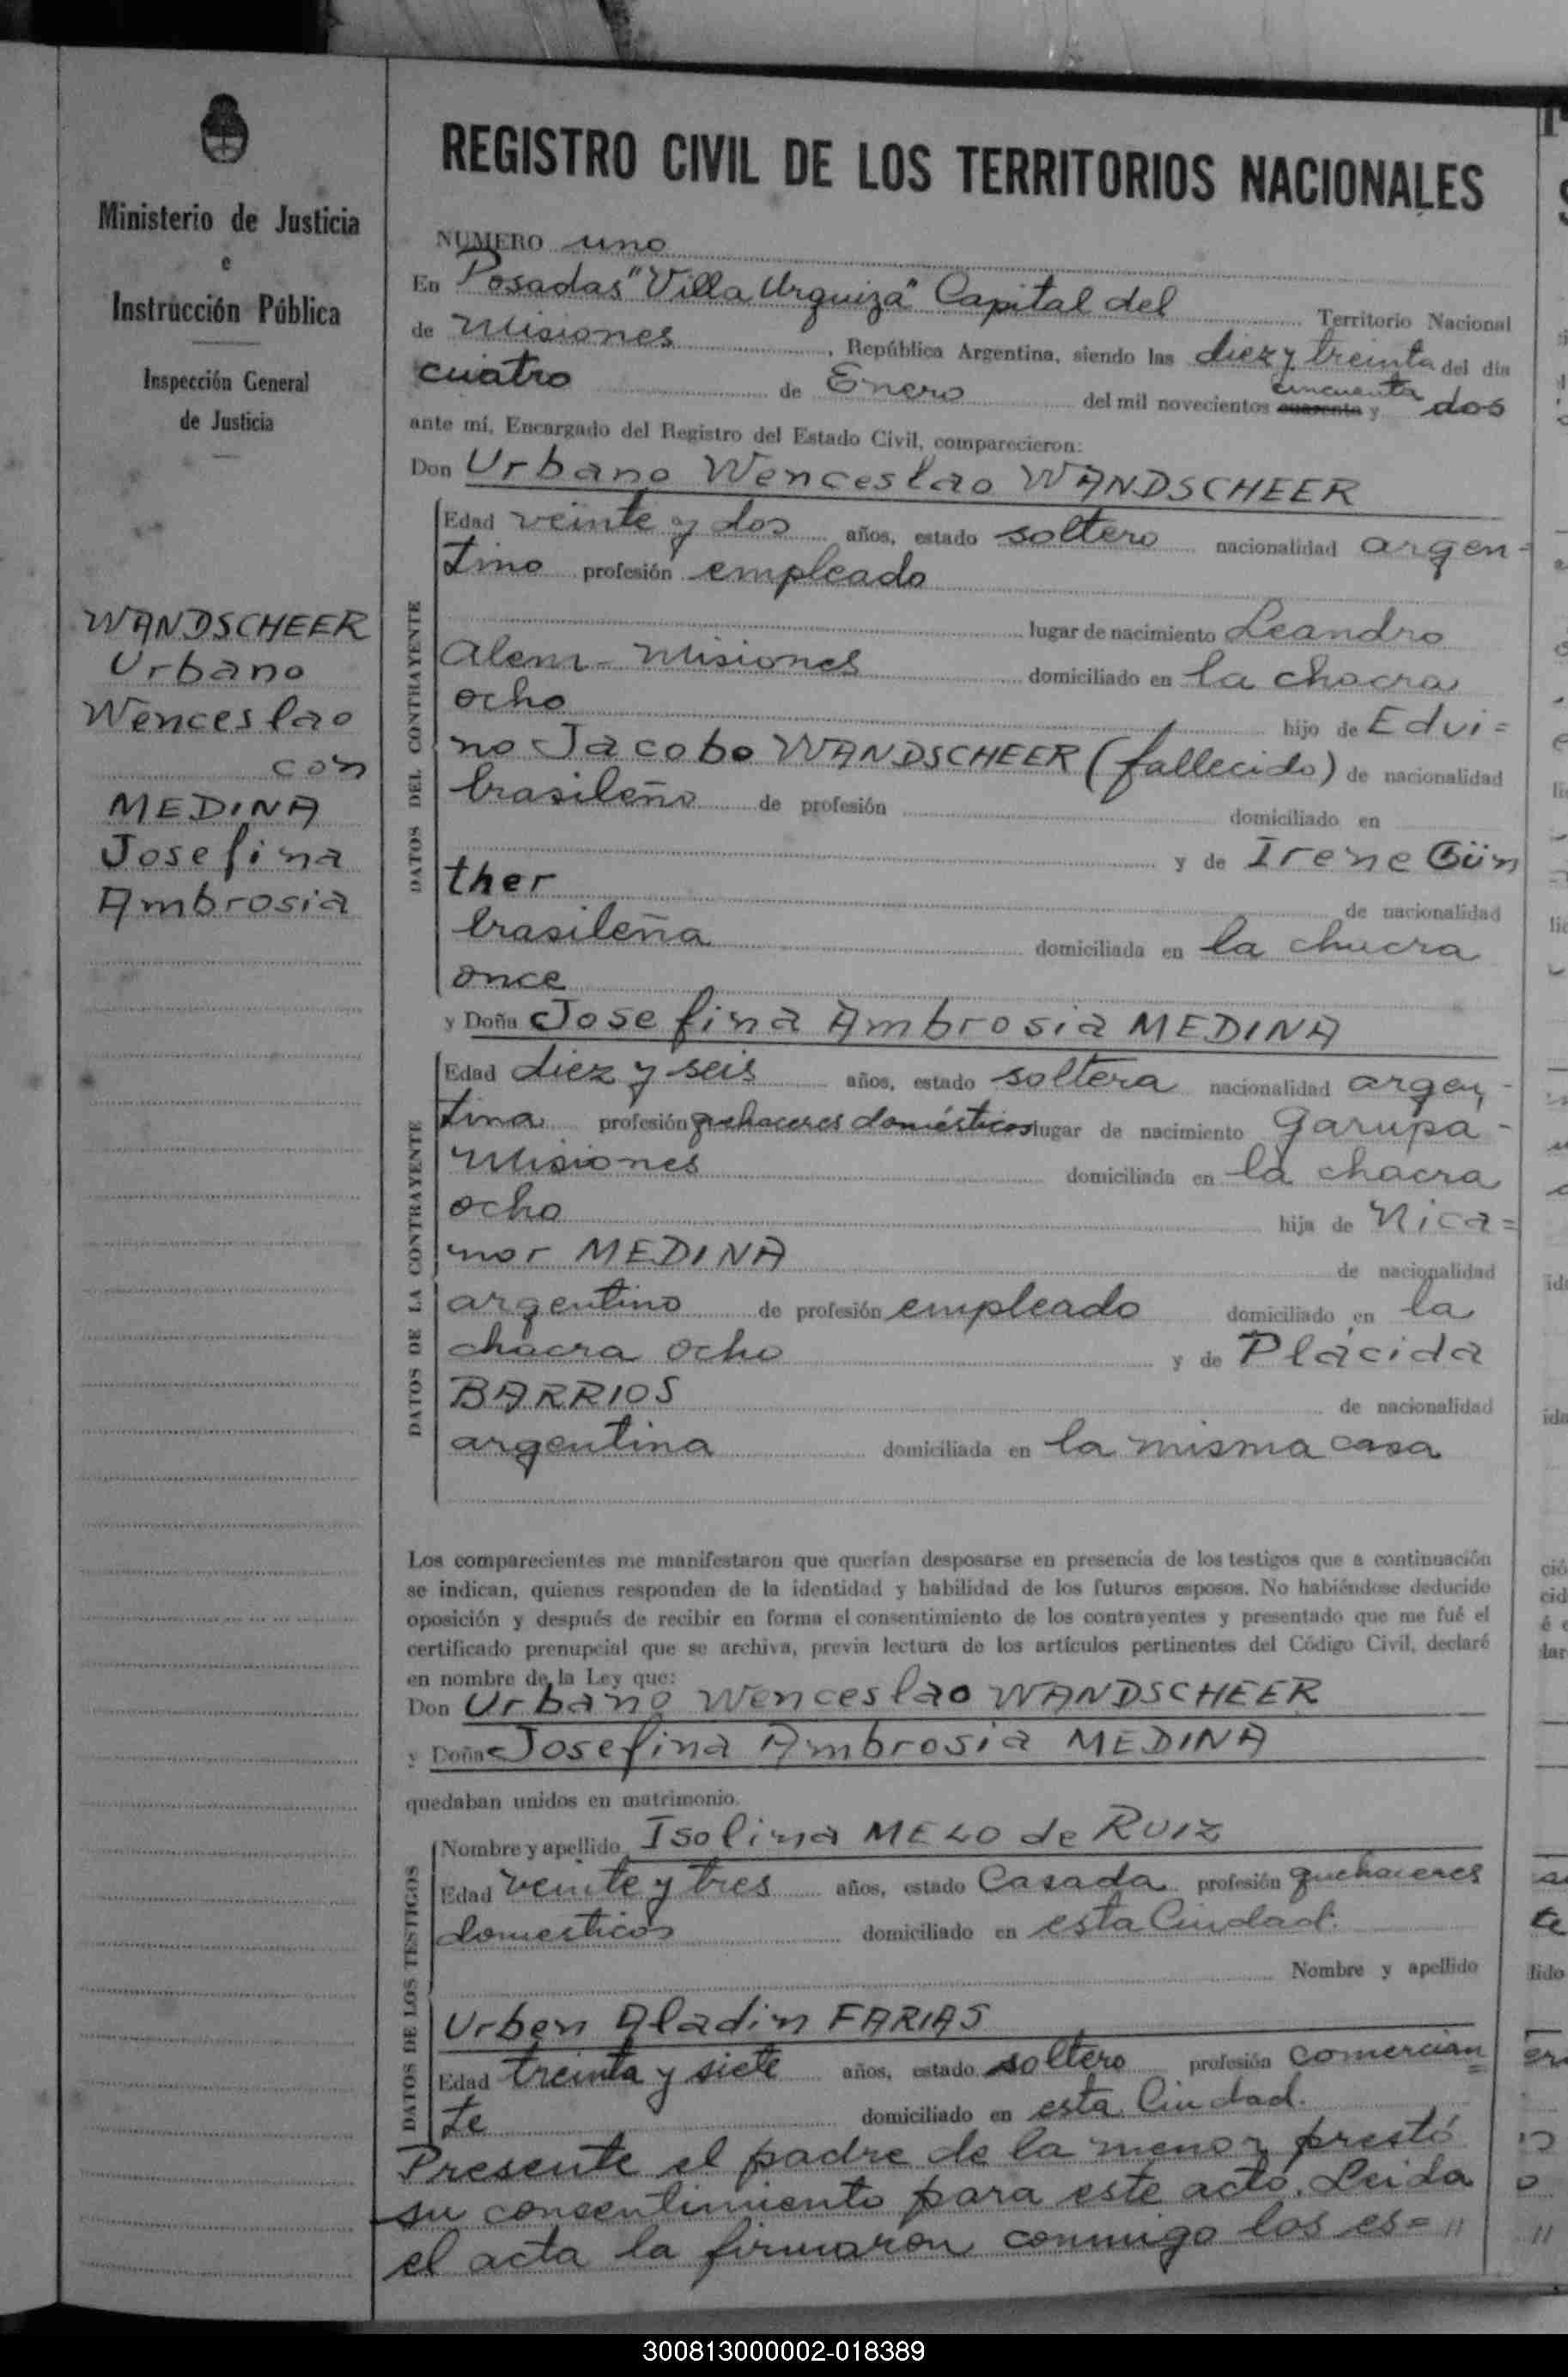 Ministerio de Justicia
e
Instrucción Pública
Inspección General
de Justicia
WANDSCHEER
Urbano
Wenceslao
con
MEDINA
Josefina
Ambrosia
REGISTRO CIVIL DE LOS TERRITORIOS NACIONALES
NUMERO uno
En Posadas "Villa Urquiza" Capital del Territorio Nacional
de Misiones, República Argentina, siendo las diez y treinta del día
cuatro de Enero del mil novecientos cuarenta cincuenta y dos
ante mí, Encargado del Registro del Estado Civil, comparecieron:
Don Urbano Wenceslao WANDSCHEER
DATOS DEL CONTRAYENTE
Edad veinte y dos años, estado soltero nacionalidad argen-
tino profesión empleado
lugar de nacimiento Leandro
Alem - Misiones domiciliado en la chacra
ocho hijo de Edvi=
no Jacobo WANDSCHEER (fallecido) de nacionalidad
brasileño de profesión domiciliado en
y de Irene Gün
ther de nacionalidad
brasileña domiciliada en la chacra
once
y Doña Josefina Ambrosia MEDINA
DATOS DE LA CONTRAYENTE
Edad diez y seis años, estado soltera nacionalidad argen-
tina profesión quehaceres domésticos lugar de nacimiento Garupa-
Misiones domiciliada en la chacra
ocho hija de Nica=
nor MEDINA de nacionalidad
argentino de profesión empleado domiciliado en la
chacra ocho y de Plácida
BARRIOS de nacionalidad
argentina domiciliada en la misma casa
Los comparecientes me manifestaron que querían desposarse en presencia de los testigos que a continuación
se indican, quienes responden de la identidad y habilidad de los futuros esposos. No habiéndose deducido
oposición y después de recibir en forma el consentimiento de los contrayentes y presentado que me fué el
certificado prenupcial que se archiva, previa lectura de los artículos pertinentes del Código Civil, declaré
en nombre de la Ley que:
Don Urbano Wenceslao WANDSCHEER
y Doña Josefina Ambrosia MEDINA
quedaban unidos en matrimonio.
DATOS DE LOS TESTIGOS
Nombre y apellido Isolina MELO de RUIZ
Edad veinte y tres años, estado Casada profesión quehaceres
domesticos domiciliado en esta Ciudad.
Nombre y apellido
Urben Aladin FARIAS
Edad treinta y siete años, estado soltero profesión comercian=
te domiciliado en esta Ciudad.
Presente el padre de la menor, prestó
su consentimiento para este acto. Leida
el acta la firmaron conmigo los es="
300813000002-018389